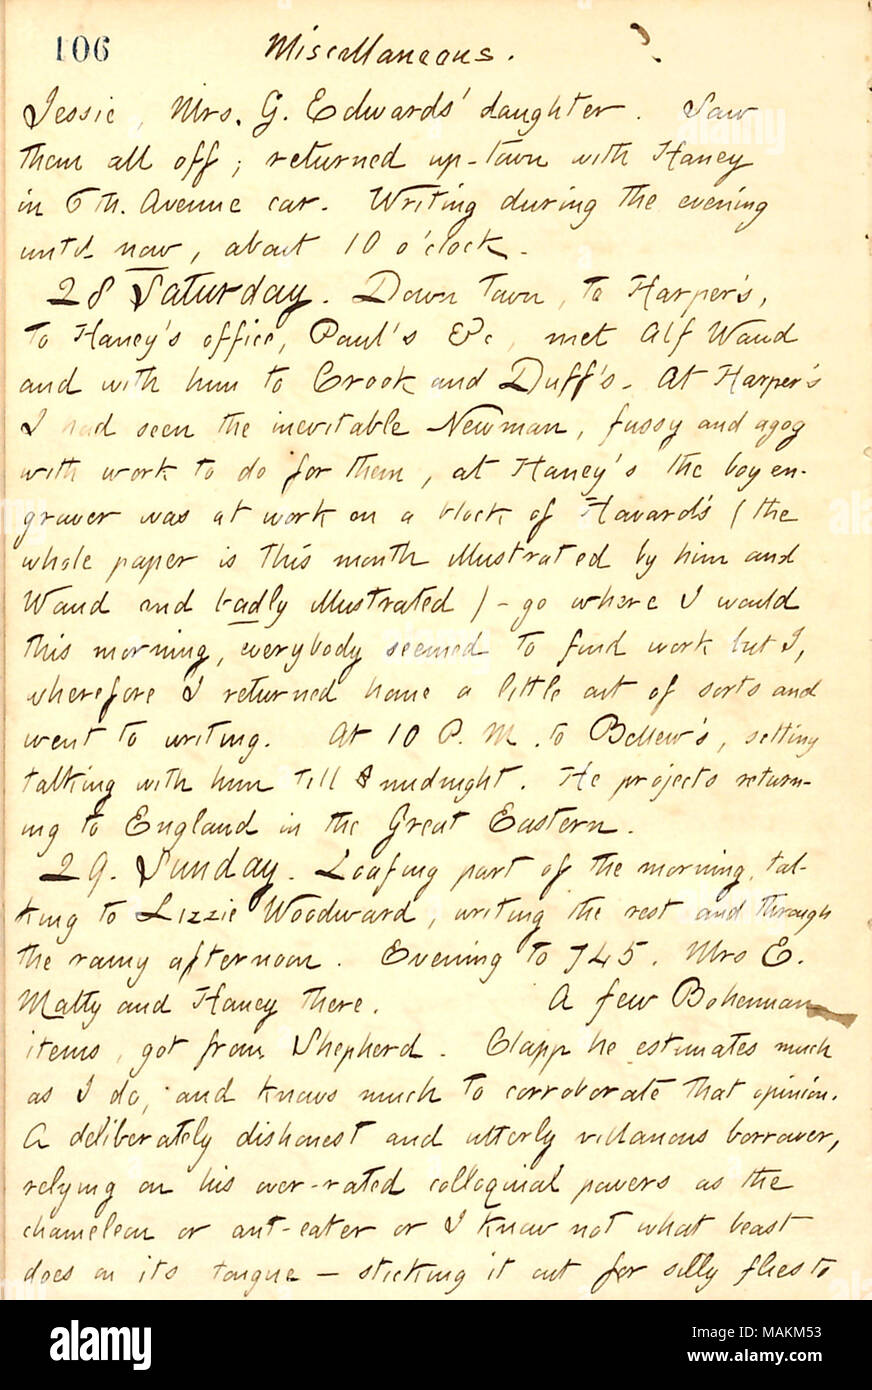 106 Miscellaneous.
Jessie, Mrs. G. Edwards' daughter. Saw
them all off; returned up-town with Haney
in 6th. Avenue car. Writing during the evening
until now, about 10 o'clock.
28 Saturday. Down town, to Harper's,
to Haney's office, Paul's &c, met Alf Waud
and with him to Crook and Duff's. At Harper's
I had seen the inevitable Newman, fussy and agog
with work to do for them, at Haney's the boy en-
graver was at work on a block of Havard's (the
whole paper is this month illustrated by him and
Waud and badly illustrated) - go where I would
this morning, everybody seemed to find work but I,
wherefore I returned home a little out of sorts and
went to writing. At 10 P. M. to Bellew's, setting
talking with him till midnight. He projects return-
ing to England in the Great Eastern.
29. Sunday. Loafing part of the morning, tal-
king to Lizzie Woodward, writing the rest and through
the rainy afternoon. Evening to 745. Mrs E.
Matty and Haney there. A few Bohemian
items, got from Shepherd. Clapp he estimates much
as I do, and knows much to corroborate that opinion.
A deliberately dishonest and utterly villanous borrower,
relying on his over-rated colloquial powers as the
chameleon or ant-eater or I know not what beast
does on its tongue — sticking it out for silly flies to
alamy
Image ID: MAKM53
www.alamy.com